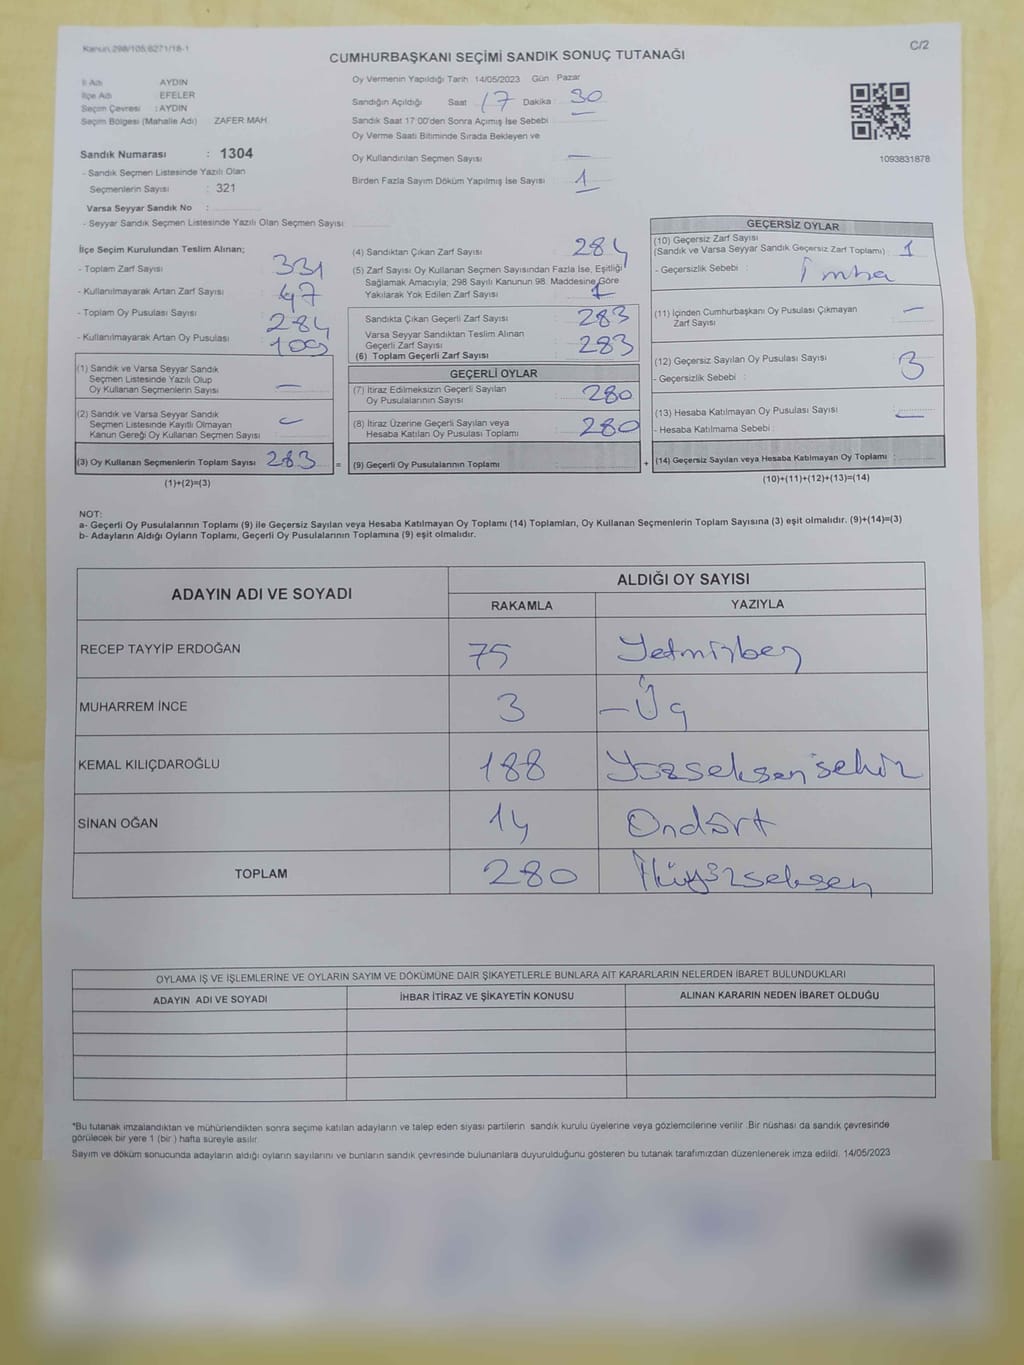 Kanun 298/105,6271/18-1
C/2
CUMHURBAŞKANI SEÇİMİ SANDIK SONUÇ TUTANAĞI
İl Adı AYDIN
İlçe Adı EFELER
Seçim Çevresi : AYDIN
Seçim Bölgesi (Mahalle Adı) ZAFER MAH
Sandık Numarası : 1304
- Sandık Seçmen Listesinde Yazılı Olan
Seçmenlerin Sayısı : 321
Varsa Seyyar Sandık No :
- Seyyar Sandık Seçmen Listesinde Yazılı Olan Seçmen Sayısı
Oy Vermenin Yapıldığı Tarih 14/05/2023 Gün Pazar
Sandığın Açıldığı Saat 17 Dakika 30
Sandık Saat 17:00'den Sonra Açımış İse Sebebi
Oy Verme Saati Bitiminde Sırada Bekleyen ve
Oy Kullandırılan Seçmen Sayısı —
Birden Fazla Sayım Döküm Yapılmış İse Sayısı 1
1093831878
İlçe Seçim Kurulundan Teslim Alınan;
- Toplam Zarf Sayısı 331
- Kullanılmayarak Artan Zarf Sayısı 47
- Toplam Oy Pusulası Sayısı 284
- Kullanılmayarak Artan Oy Pusulası
(1) Sandık ve Varsa Seyyar Sandık
Seçmen Listesinde Yazılı Olup
Oy Kullanan Seçmenlerin Sayısı —
(2) Sandık ve Varsa Seyyar Sandık
Seçmen Listesinde Kayıtlı Olmayan
Kanun Gereği Oy Kullanan Seçmen Sayısı —
(3) Oy Kullanan Seçmenlerin Toplam Sayısı 283 =
(1)+(2)=(3)
(4) Sandıktan Çıkan Zarf Sayısı 284
(5) Zarf Sayısı Oy Kullanan Seçmen Sayısından Fazla İse, Eşitliği
Sağlamak Amacıyla; 298 Sayılı Kanunun 98. Maddesine Göre
Yakılarak Yok Edilen Zarf Sayısı 1
Sandıkta Çıkan Geçerli Zarf Sayısı 283
Varsa Seyyar Sandıktan Teslim Alınan
Geçerli Zarf Sayısı 283
(6) Toplam Geçerli Zarf Sayısı
GEÇERLİ OYLAR
(7) İtiraz Edilmeksizin Geçerli Sayılan
Oy Pusulalarının Sayısı 280
(8) İtiraz Üzerine Geçerli Sayılan veya
Hesaba Katılan Oy Pusulası Toplamı 280
(9) Geçerli Oy Pusulalarının Toplamı +
GEÇERSİZ OYLAR
(10) Geçersiz Zarf Sayısı
(Sandık ve Varsa Seyyar Sandık Geçersiz Zarf Toplamı) : 1
- Geçersizlik Sebebi : İmha
(11) İçinden Cumhurbaşkanı Oy Pusulası Çıkmayan
Zarf Sayısı —
(12) Geçersiz Sayılan Oy Pusulası Sayısı 3
- Geçersizlik Sebebi :
(13) Hesaba Katılmayan Oy Pusulası Sayısı —
- Hesaba Katılmama Sebebi
(14) Geçersiz Sayılan veya Hesaba Katılmayan Oy Toplamı :
(10)+(11)+(12)+(13)=(14)
NOT:
a- Geçerli Oy Pusulalarının Toplamı (9) ile Geçersiz Sayılan veya Hesaba Katılmayan Oy Toplamı (14) Toplamları, Oy Kullanan Seçmenlerin Toplam Sayısına (3) eşit olmalıdır. (9)+(14)=(3)
b- Adayların Aldığı Oyların Toplamı, Geçerli Oy Pusulalarının Toplamına (9) eşit olmalıdır.
ADAYIN ADI VE SOYADI ALDIĞI OY SAYISI
RAKAMLA YAZIYLA
RECEP TAYYİP ERDOĞAN 75 Yetmişbeş
MUHARREM İNCE 3 – Üç
KEMAL KILIÇDAROĞLU 188 Yüzseksensekiz
SİNAN OĞAN 14 Ondört
TOPLAM 280 İkiyüzseksen
OYLAMA İŞ VE İŞLEMLERİNE VE OYLARIN SAYIM VE DÖKÜMÜNE DAİR ŞİKAYETLERLE BUNLARA AİT KARARLARIN NELERDEN İBARET BULUNDUKLARI
ADAYIN ADI VE SOYADI İHBAR İTİRAZ VE ŞİKAYETİN KONUSU ALINAN KARARIN NEDEN İBARET OLDUĞU
*Bu tutanak imzalandıktan ve mühürlendikten sonra seçime katılan adayların ve talep eden siyasi partilerin sandık kurulu üyelerine veya gözlemcilerine verilir. Bir nüshası da sandık çevresinde
görülecek bir yere 1 (bir ) hafta süreyle asılır.
Sayım ve döküm sonucunda adayların aldığı oyların sayılarını ve bunların sandık çevresinde bulunanlara duyurulduğunu gösteren bu tutanak tarafımızdan düzenlenerek imza edildi. 14/05/2023